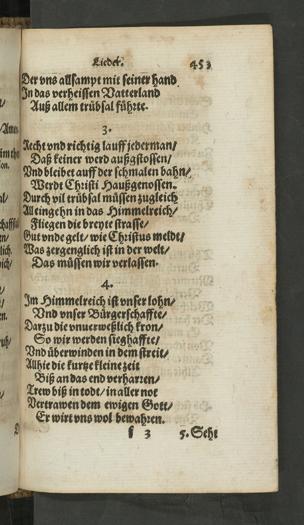 Lieder. 453
Der vns allsampt mit seiner hand
In das verheissen Vatterland
Auß allem trübsal führte.
3.
Recht vnd richtig lauff jederman/
Daß keiner werd außgstossen/
Vnd bleibet auff der schmalen bahn/
Werdt Christi Haußgenossen.
Durch vil trübsal müssen zugleich
All eingehn in das Himmelreich/
Fliegen die breyte strasse/
Gut vnde gelt/ wie Christus meldt/
Was zergenglich ist in der welt/
Das müssen wir verlassen.
4.
Im Himmelreich ist vnser lohn/
Vnd vnser Bürgerschaffte/
Darzu die vnuerweßlich kron/
So wir werden sieghaffte/
Vnd überwinden in dem streit/
Allhie die kurtze kleine zeit
Biß an das end verharren/
Trew biß in todt/ in aller not
Vertrawen dem ewigen Gott/
Er wirt vns wol bewahren.
f 3 5. Seht